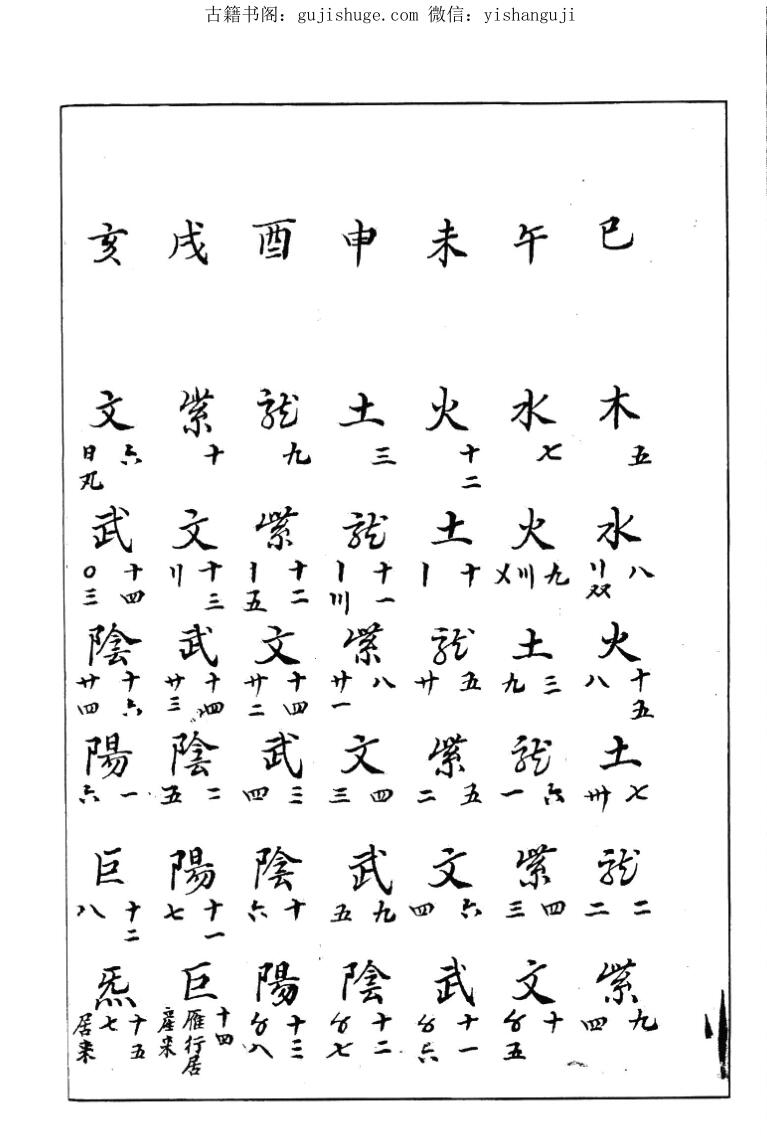 古籍书阁：gujishuge.com 微信：yishanguji
巳 木 五 水 八 火 十五 八 土 七 卅 龍 二 二 紫 九 四
午 水 七 火 九 〣 〤 土 三 九 龍 六 一 紫 四 三 文 十 五
未 火 十二 土 十 〡 龍 五 廿 紫 五 二 文 六 四 武 十一 六
申 土 三 龍 十一 〡 〣 紫 八 廿一 文 四 三 武 九 五 陰 十二 七
酉 龍 九 紫 十二 〡 五 文 十四 廿二 武 三 四 陰 十 六 陽 十三 八
戌 紫 十 文 十三 〢 武 十四 廿三 陰 二 五 陽 十一 七 巨 十四 雁行居 産来
亥 文 六 日 武 十四 〇三 陰 十六 廿四 陽 一 六 巨 十二 八 炁 十五 七 居来